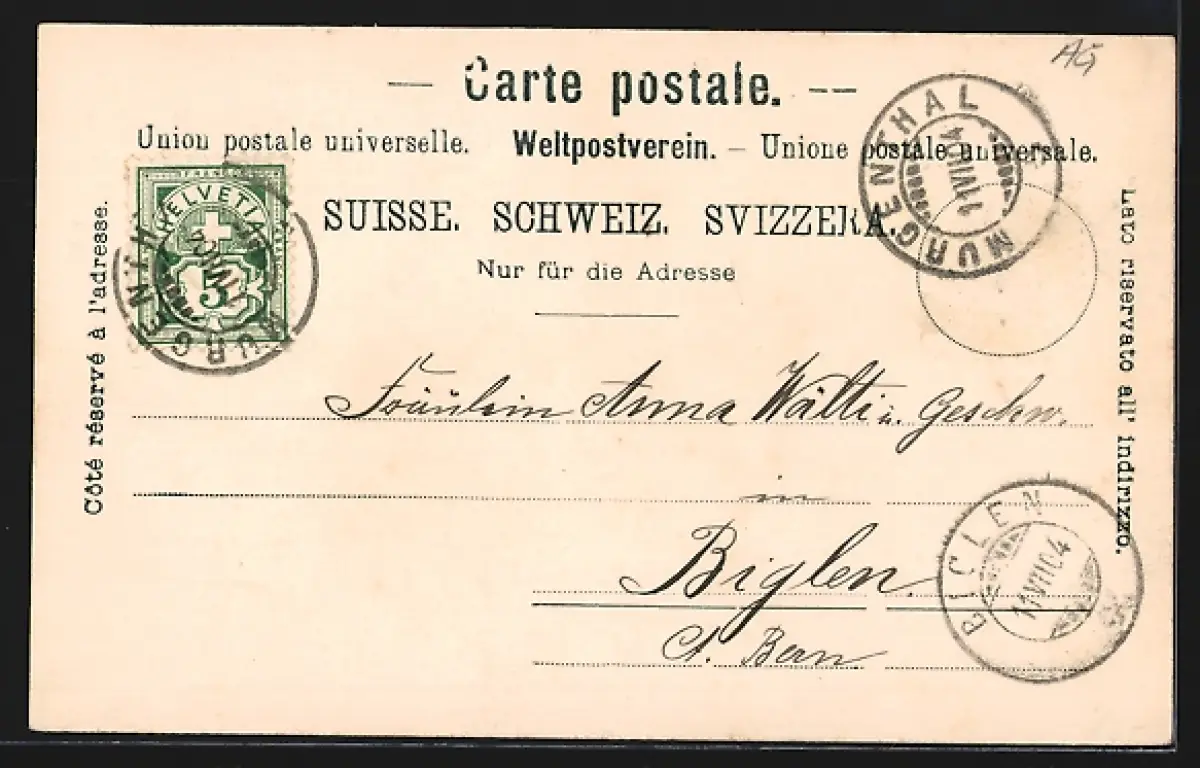 AG
— Carte postale. —
Union postale universelle. Weltpostverein. – Unione postale universale.
SUISSE. SCHWEIZ. SVIZZERA.
Nur für die Adresse
Côté réservé à l'adresse.
Lato riservato all' indirizzo.
FRANCO
HELVETIA
5
MURGENTHAL
MURGENTHAL
11 VII 04
Fräulein Anna Wälti u. Geschw.
in
Biglen.
Ct. Bern
BIGLEN
11 VII 04